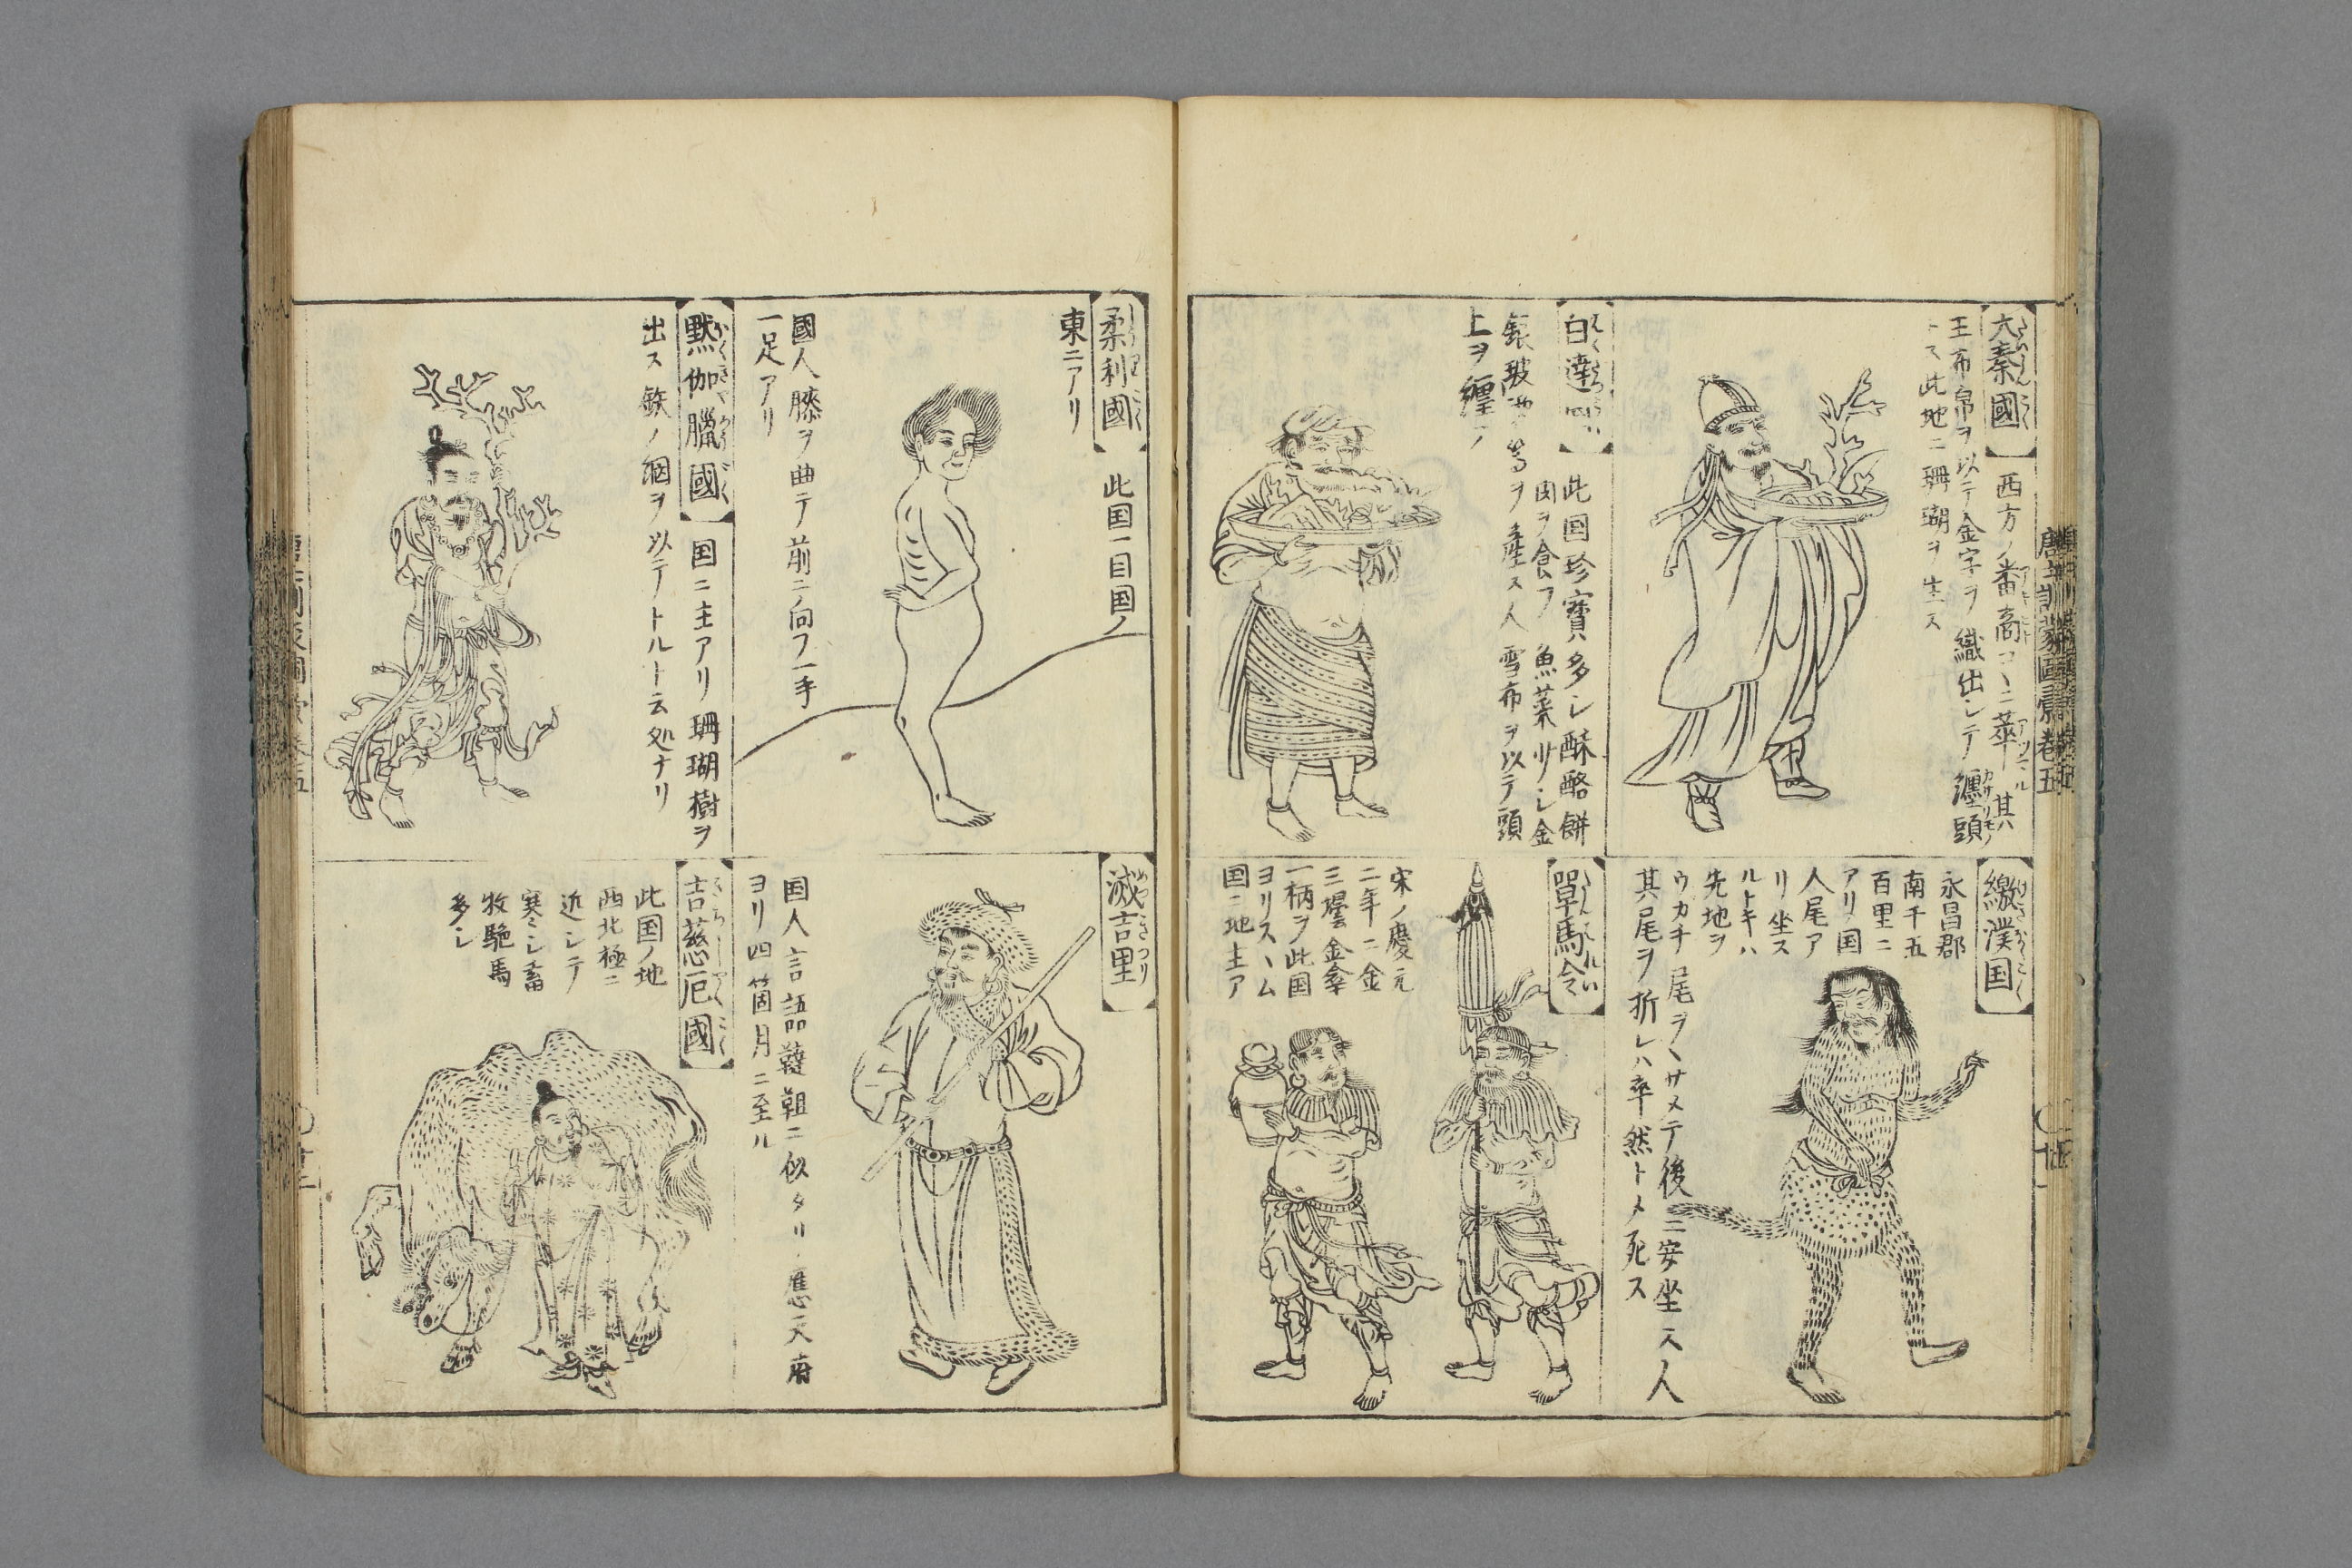 大秦國
西方ノ番商コヽニ萃ル其
王布帛ヲ以テ金字ヲ織出シテ纒頭
トス此地ニ珊瑚ヲ生ス
白達國
此国珍寶多シ酥酪餅
肉ヲ食フ魚菜少シ金
銀玻瓈等ヲ産ス人雪布ヲ以テ頭
上ヲ纒フ
繳濮国
永昌郡
南千五
百里ニ
アリ国
人尾ア
リ坐ス
ルトキハ
先地ヲ
ウカチ尾ヲヽサメテ後ニ安坐ス人
其尾ヲ折レハ卒然トメ死ス
單馬令
宋ノ慶元
二年ニ金
三壜金傘
一柄ヲ此国
ヨリスヽム
国ニ地主ア
唐土訓蒙圖彙卷五
柔利國
此国一目国ノ
東ニアリ
國人膝ヲ曲テ前ニ向フ一手
一足アリ
黙伽臘國
国ニ主アリ珊瑚樹ヲ
出ス鉄ノ網ヲ以テトルト云処ナリ
滅吉里
国人言語韃靼ニ似タリ應天府
ヨリ四箇月ニ至ル
吉慈厄國
此国ノ地
西北極ニ
近シテ
寒シ畜
牧駞馬
多シ